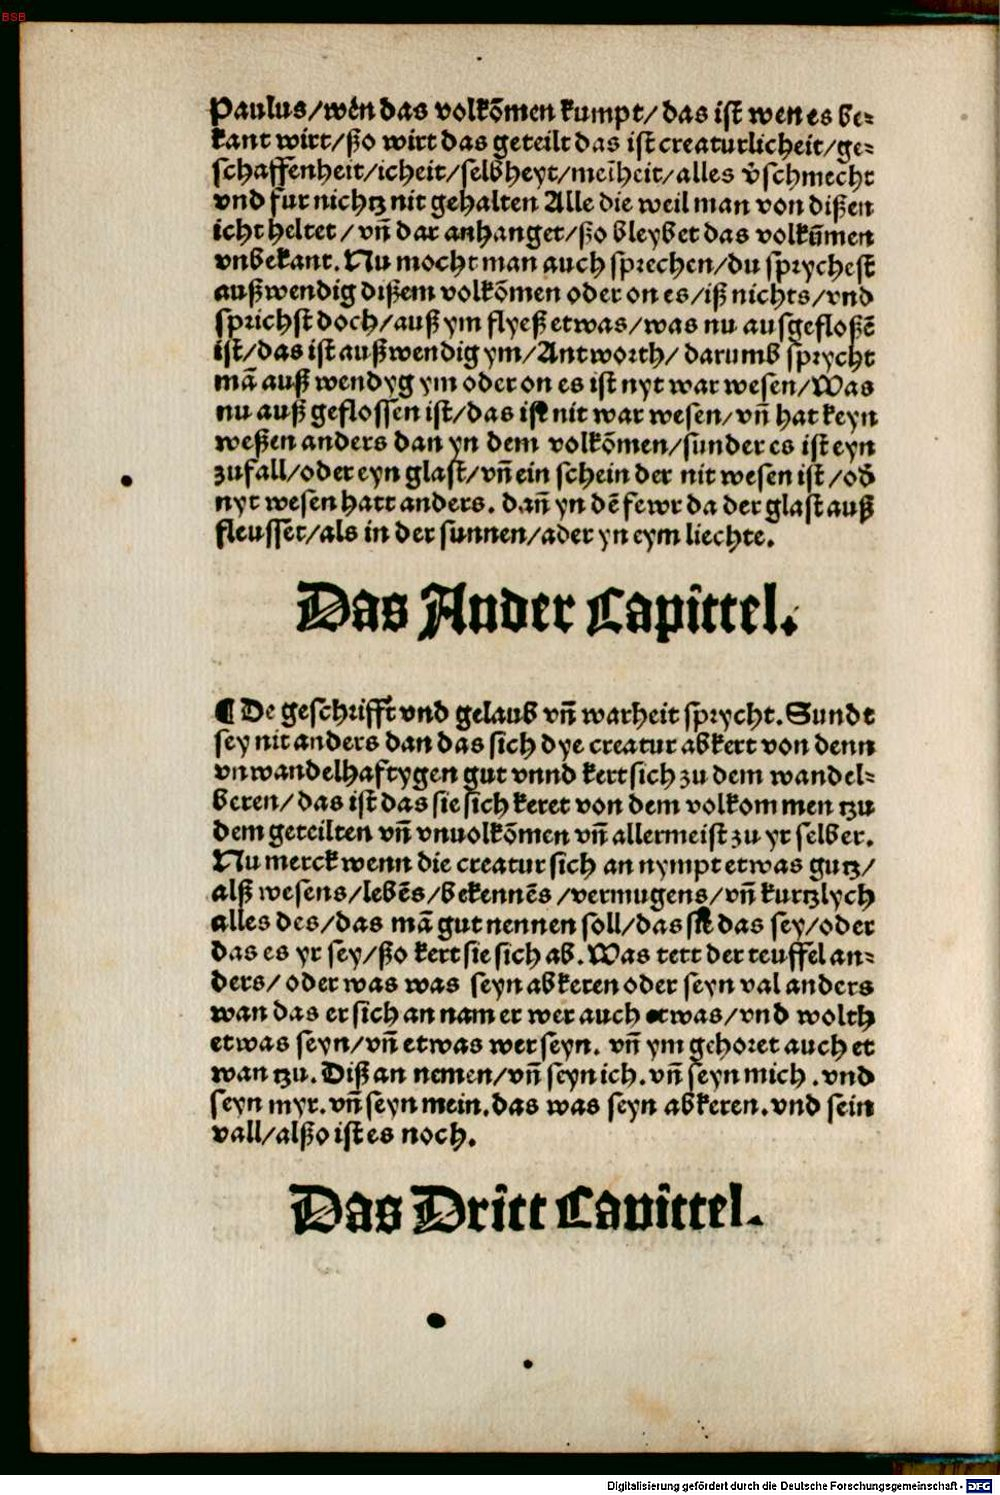 BSB
Paulus/wēn das volkōmen kumpt/ das ist wen es be⸗
kant wirt/ßo wirt das geteilt das ist creaturlicheit/ge⸗
schaffenheit/icheit/selbheyt/mein̄heit/alles v̄schmecht
vnd fur nichtz nit gehalten Alle die weil man von dißen
icht heltet / vn̄ dar anhanget/ßo bleybet das volkūmen
vnbekant. Nu mocht man auch sprechen/du sprychest
außwendig dißem volkōmen oder on es/iß nichts/vnd
sprichst doch/auß ym flyeß etwas/was nu ausgefloßē
ist/das ist außwendig ym/Antworth/ darumb sprycht
mā auß wendyg ym oder on es ist nyt war wesen/Was
nu auß geflossen ist/das ist nit war wesen/vn̄ hat keyn
weßen anders dan yn dem volkōmen/sunder es ist eyn
zufall/oder eyn glast/vn̄ ein schein der nit wesen ist /od̄
nyt wesen hatt anders. dan̄ yn dē fewr da der glast auß
fleusset/als in der sunnen/ader yn eym liechte.
Das Ander Capittel.
¶ De geschrifft vnd gelaub vn̄ warheit sprycht. Sundt
sey nit anders dan das sich dye creatur abkert von denn
vnwandelhaftygen gut vnnd kert sich zu dem wandel⸗
beren/das ist das sie sich keret von dem volkom men tzu
dem geteilten vn̄ vnuolkōmen vn̄ allermeist zu yr selber.
Nu merck wenn die creatur sich an nympt etwas gutz/
alß wesens/lebēs/bekennēs /vermugens/vn̄ kurtzlych
alles des/das mā gut nennen soll/das sie das sey/oder
das es yr sey/ßo kert sie sich ab. Was tett der teuffel an⸗
ders/ oder was was seyn abkeren oder seyn val anders
wan das er sich an nam er wer auch etwas/vnd wolth
etwas seyn/vn̄ etwas wer seyn. vn̄ ym gehoret auch et
wan tzu. Diß an nemen/vn̄ seyn ich. vn̄ seyn mich . vnd
seyn myr. vn̄ seyn mein. das was seyn abkeren. vnd sein
vall/alßo ist es noch.
Das Dritt Capittel.
Digitalisierung gefördert durch die Deutsche Forschungsgemeinschaft - DFG